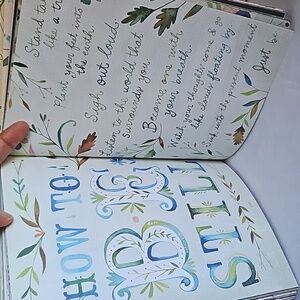 Stand ta
like a tr
Plant your feet into
the earth
Sigh out loud
Listen to the world that
surrounds you
Become one with
your breath
Watch your thoughts come & go
like clouds floating by
Sink into the present moment
Just be
HOW TO
BE
STILL